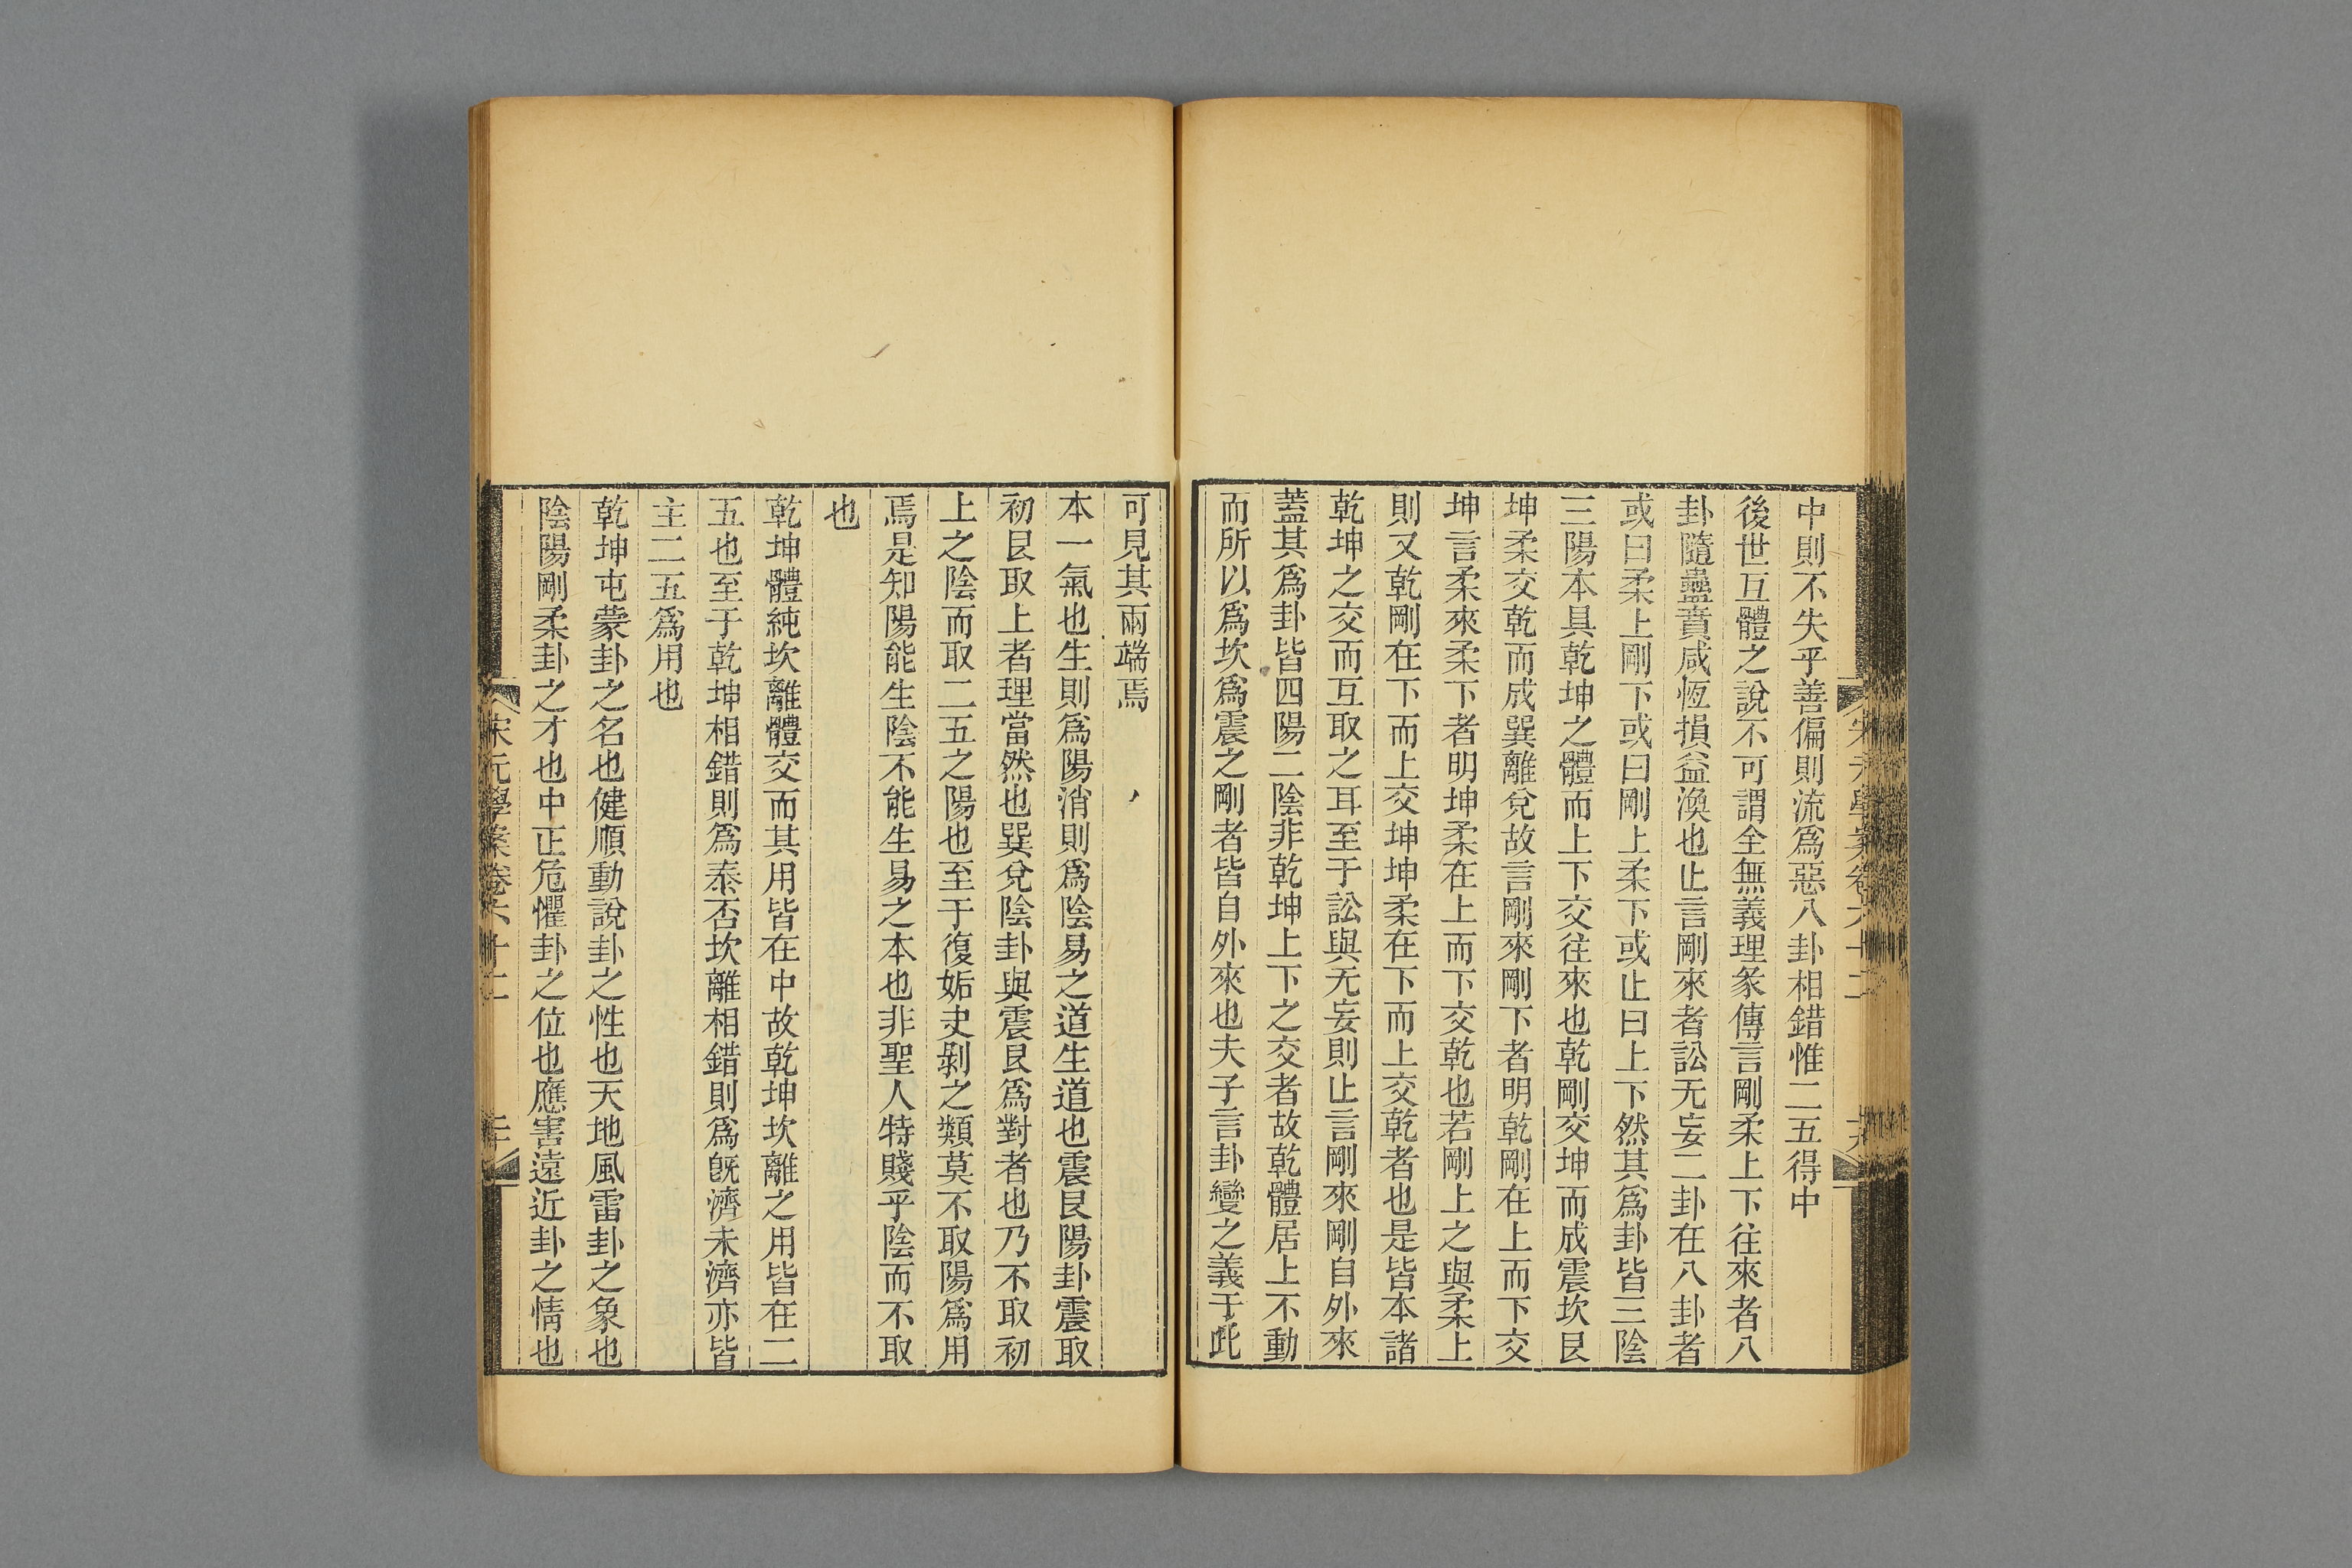 中則不失乎善偏則流爲惡八卦相錯惟二五得中
後世互體之說不可謂全無義理彖傳言剛柔上下往來者八
卦隨蠱賁咸恆損益渙也止言剛來者訟无妄二卦在八卦者
或曰柔上剛下或曰剛上柔下或止曰上下然其爲卦皆三陰
三陽本具乾坤之體而上下交往來也乾剛交坤而成震坎艮
坤柔交乾而成巽離兌故言剛來剛下者明乾剛在上而下交
坤言柔來柔下者明坤柔在上而下交乾也若剛上之與柔上
則又乾剛在下而上交坤坤柔在下而上交乾者也是皆本諸
乾坤之交而互取之耳至于訟與无妄則止言剛來剛自外來
蓋其爲卦皆四陽二陰非乾坤上下之交者故乾體居上不動
而所以爲坎爲震之剛者皆自外來也夫子言卦變之義于此
可見其兩端焉
本一氣也生則爲陽消則爲陰易之道生道也震艮陽卦震取
初艮取上者理當然也巽兌陰卦與震艮爲對者也乃不取初
上之陰而取二五之陽也至于復姤夬剝之類莫不取陽爲用
焉是知陽能生陰不能生易之本也非聖人特賤乎陰而不取
也
乾坤體純坎離體交而其用皆在中故乾坤坎離之用皆在二
五也至于乾坤相錯則爲泰否坎離相錯則爲旣濟未濟亦皆
主二五爲用也
乾坤屯蒙卦之名也健順動說卦之性也天地風雷卦之象也
陰陽剛柔卦之才也中正危懼卦之位也應害遠近卦之情也
宋元學案卷六十二